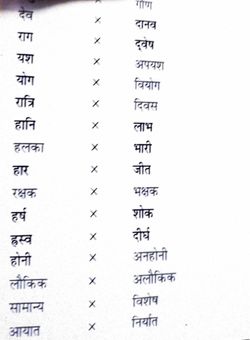 गौण
देव × दानव
राग × द्वेष
यश × अपयश
योग × वियोग
रात्रि × दिवस
हानि × लाभ
हलका × भारी
हार × जीत
रक्षक × भक्षक
हर्ष × शोक
ह्रस्व × दीर्घ
होनी × अनहोनी
लौकिक × अलौकिक
सामान्य × विशेष
आयात × निर्यात